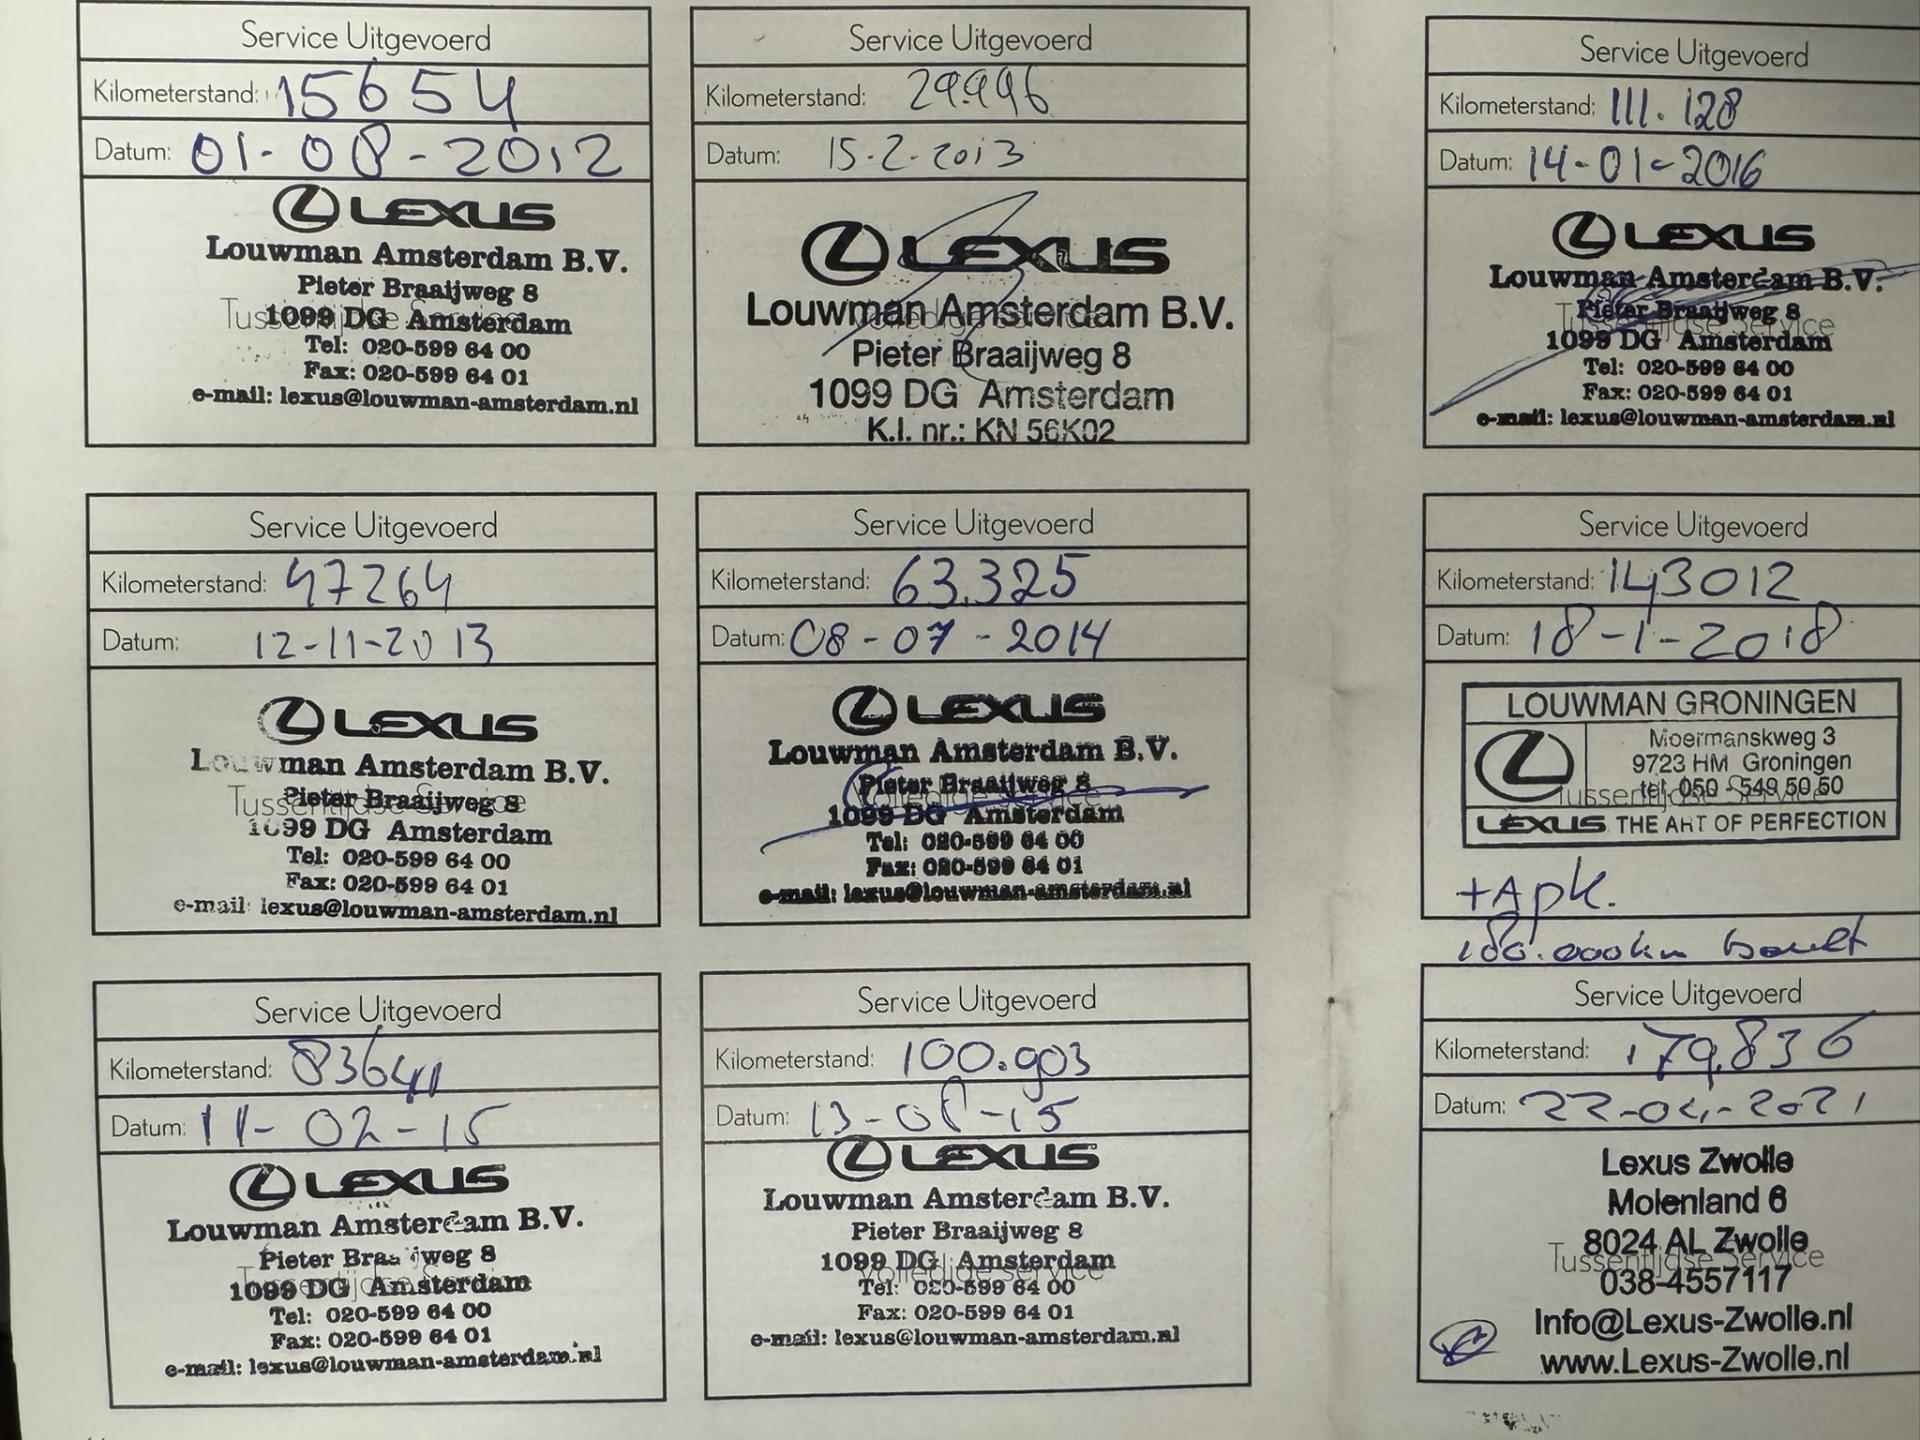 Service Uitgevoerd
Kilometerstand: 15654
Datum: 01-08-2012
LEXUS
Louwman Amsterdam B.V.
Pieter Braaijweg 8
Tussentijdse Service
1099 DG Amsterdam
Tel: 020-599 64 00
Fax: 020-599 64 01
e-mail: lexus@louwman-amsterdam.nl
Service Uitgevoerd
Kilometerstand: 29.996
Datum: 15-2-2013
LEXUS
Louwman Amsterdam B.V.
Pieter Braaijweg 8
1099 DG Amsterdam
K.I. nr.: KN 56K02
Service Uitgevoerd
Kilometerstand: 111.128
Datum: 14-01-2016
LEXUS
Louwman Amsterdam B.V.
Pieter Braaijweg 8
Tussentijdse Service
1099 DG Amsterdam
Tel: 020-599 64 00
Fax: 020-599 64 01
e-mail: lexus@louwman-amsterdam.nl
Service Uitgevoerd
Kilometerstand: 47264
Datum: 12-11-2013
LEXUS
Louwman Amsterdam B.V.
Pieter Braaijweg 8
Tussentijdse Service
1099 DG Amsterdam
Tel: 020-599 64 00
Fax: 020-599 64 01
e-mail: lexus@louwman-amsterdam.nl
Service Uitgevoerd
Kilometerstand: 63.325
Datum: 08-07-2014
LEXUS
Louwman Amsterdam B.V.
Pieter Braaijweg 8
Volledige Service
1099 DG Amsterdam
Tel: 020-599 64 00
Fax: 020-599 64 01
e-mail: lexus@louwman-amsterdam.nl
Service Uitgevoerd
Kilometerstand: 143012
Datum: 18-1-2018
LOUWMAN GRONINGEN
Moermanskweg 3
9723 HM Groningen
tel. 050 - 549 50 50
Tussentijdse Service
LEXUS THE ART OF PERFECTION
+Apk.
180.000km beurt
Service Uitgevoerd
Kilometerstand: 83641
Datum: 11-02-15
LEXUS
Louwman Amsterdam B.V.
Pieter Braaijweg 8
1099 DG Amsterdam
Tel: 020-599 64 00
Fax: 020-599 64 01
e-mail: lexus@louwman-amsterdam.nl
Service Uitgevoerd
Kilometerstand: 100.903
Datum: 13-08-15
LEXUS
Louwman Amsterdam B.V.
Pieter Braaijweg 8
1099 DG Amsterdam
Volledige Service
Tel: 020-599 64 00
Fax: 020-599 64 01
e-mail: lexus@louwman-amsterdam.nl
Service Uitgevoerd
Kilometerstand: 179.836
Datum: 22-04-2021
Lexus Zwolle
Molenland 6
8024 AL Zwolle
Tussentijdse Service
038-4557117
Info@Lexus-Zwolle.nl
www.Lexus-Zwolle.nl